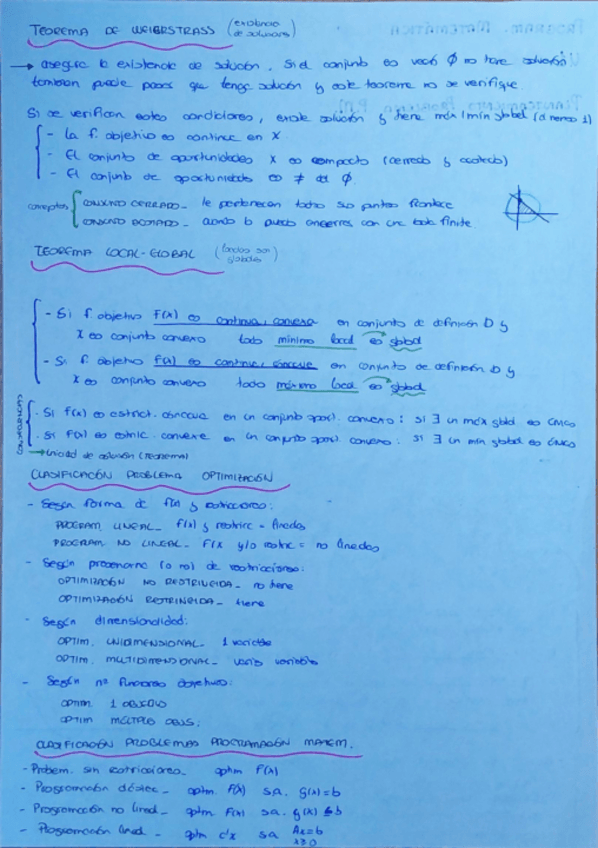 TEOREMA DE WEIERSTRASS (existencia de soluciones)
→ asegura la existencia de solución. Si el conjunto es vacío ∅ no tiene solución
también puede pasar que tenga solución y este teorema no se verifique.
Si se verifican estas condiciones, existe solución y tiene máx/mín global (al menos 1)
- La f. objetivo es continua en X
- El conjunto de oportunidades X es compacto (cerrado y acotado)
- El conjunto de oportunidades es ≠ del ∅.
conceptos
CONJUNTO CERRADO_ le pertenecen todos sus puntos frontera
CONJUNTO ACOTADO_ cuando lo puedo encerrar con una bola finita
TEOREMA LOCAL-GLOBAL (locales son globales)
- Si f objetivo F(x) es continua, convexa en conjunto de definición D y
X es conjunto convexo todo mínimo local es global
- Si f. objetivo F(x) es continua, cóncava en conjunto de definición D y
X es conjunto convexo todo máximo local es global
CONSECUENCIAS
· Si F(x) es estrict. cóncava en un conjunto oport. convexo: si ∃ un máx global es único
· Si F(x) es estric. convexa en un conjunto oport. convexo: si ∃ un mín global es único
→ unicidad de solución (teorema)
CLASIFICACIÓN PROBLEMA OPTIMIZACIÓN
- Según forma de f(x) y restricciones:
PROGRAM. LINEAL_ F(x) y restric = lineales
PROGRAM NO LINEAL_ F(x y/o restric = no lineales
- Según presencia (o no) de restricciones:
OPTIMIZACIÓN NO RESTRINGIDA_ no tiene
OPTIMIZACIÓN RESTRINGIDA_ tiene
- Según dimensionalidad:
OPTIM. UNIDIMENSIONAL_ 1 variable
OPTIM. MULTIDIMENSIONAL_ varias variables
- Según nº funciones objetivo:
OPTIM. 1 OBJETIVO
OPTIM MÚLTIPLES OBJS.
CLASIFICACIÓN PROBLEMAS PROGRAMACIÓN MATEM.
- Problem. sin restricciones_ optm F(x)
- Programación clásica_ optm. F(x) s.a. g(x)=b
- Programación no lineal_ optm. F(x) s.a. g(x) ≤ b
- Programación lineal_ optm c'x s.a Ax=b
x≥0